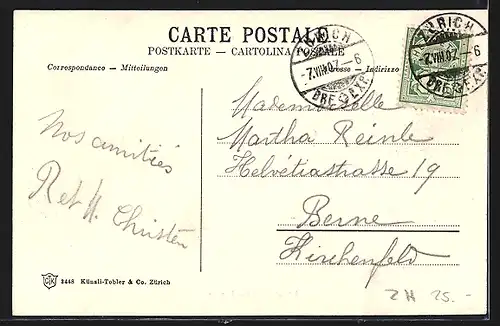 CARTE POSTALE
POSTKARTE – CARTOLINA POSTALE
Correspondance – Mitteilungen
Adresse – Indirizzo
ZÜRICH
-7.VIII.07.-6
BRF. EXP.
ZÜRICH
-7.VIII.07.-6
BRF. EXP.
Mademoiselle
Martha Reinle
Helvétiastrasse 19
Berne
Kirchenfeld
Nos amitiés
Christen
3448 Künzli-Tobler & Co. Zürich
ZH 25.-